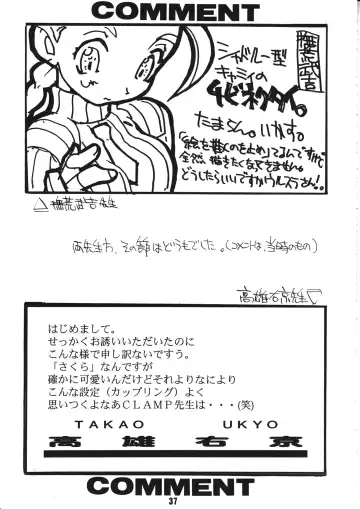 COMMENT
シャドルー型
キャミィの
チビネクタイ。
たまらん。いかす。
「絵を描くのを止め」てるんですが
全然、描きたくなってきません。
どうしたらいいですかウルズラさん!!
両先生方、その節はどうもでした。(コメントは、当時のもの)
高雄右京雄
はじめまして。
せっかくお誘いいただいたのに
こんな様で申し訳ないですう。
「さくら」なんですが
確かに可愛いんだけどそれよりなにより
こんな設定(カップリング)よく
思いつくよなあCLAMP先生は・・・(笑)
TAKAO UKYO
高雄右京
COMMENT
37